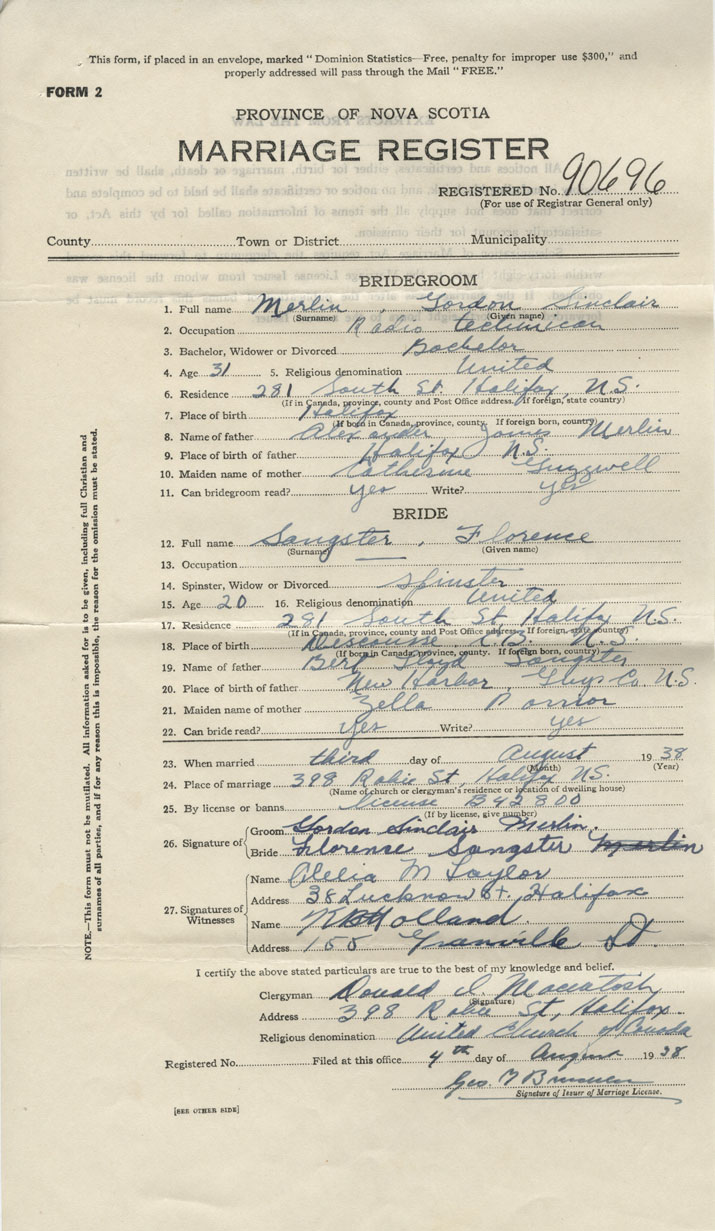 This form, if placed in an envelope, marked " Dominion Statistics—Free, penalty for improper use $300," and
properly addressed will pass through the Mail " FREE."
FORM 2
PROVINCE OF NOVA SCOTIA
MARRIAGE REGISTER
REGISTERED No. 90696
(For use of Registrar General only)
County Town or District Municipality
BRIDEGROOM
1. Full name Merlin , Gordon Sinclair
(Surname) (Given name)
2. Occupation Radio technican
3. Bachelor, Widower or Divorced Bachelor
4. Age 31 5. Religious denomination United
6. Residence 281 South St. Halifax, N.S.
(If in Canada, province, county and Post Office address. If foreign, state country)
7. Place of birth Halifax
(If born in Canada, province, county. If foreign born, country)
8. Name of father Alexander James Merlin
9. Place of birth of father Halifax N.S.
10. Maiden name of mother Catherine Guzzwell
11. Can bridegroom read? yes Write? yes
BRIDE
12. Full name Sangster , Florence
(Surname) (Given name)
13. Occupation —
14. Spinster, Widow or Divorced Spinster
15. Age 20 16. Religious denomination United
17. Residence 281 South St. Halifax N.S.
(If in Canada, province, county and Post Office address. If foreign, state country)
18. Place of birth Descousse C.B. N.S.
(If born in Canada, province, county. If foreign born, country)
19. Name of father Bert Lloyd Sangster
20. Place of birth of father New Harbor, Guys Co. N.S.
21. Maiden name of mother Zella
22. Can bride read? Yes Write? yes
23. When married third day of August 1938
(Month) (Year)
24. Place of marriage 398 Robie St, Halifax N.S.
(Name of church or clergyman's residence or location of dwelling house)
25. By license or banns license B42800
(If by license, give number)
26. Signature of Groom Gordon Sinclair Merlin.
Bride Florence Sangster Merlin
27. Signatures of Witnesses Name M Taylor
Address 38 Lucknow St. Halifax
Name Holland
Address 155 Granville St.
I certify the above stated particulars are true to the best of my knowledge and belief.
Clergyman Donald Macintosh
(Signature)
Address 398 Robie St, Halifax
Religious denomination United Church of Canada
Registered No. Filed at this office 4th day of August 1938
Geo.
Signature of Issuer of Marriage License.
[SEE OTHER SIDE]
NOTE.—This form must not be mutilated. All information asked for is to be given, including full Christian and
surnames of all parties, and if for any reason this is impossible, the reason for the omission must be stated.